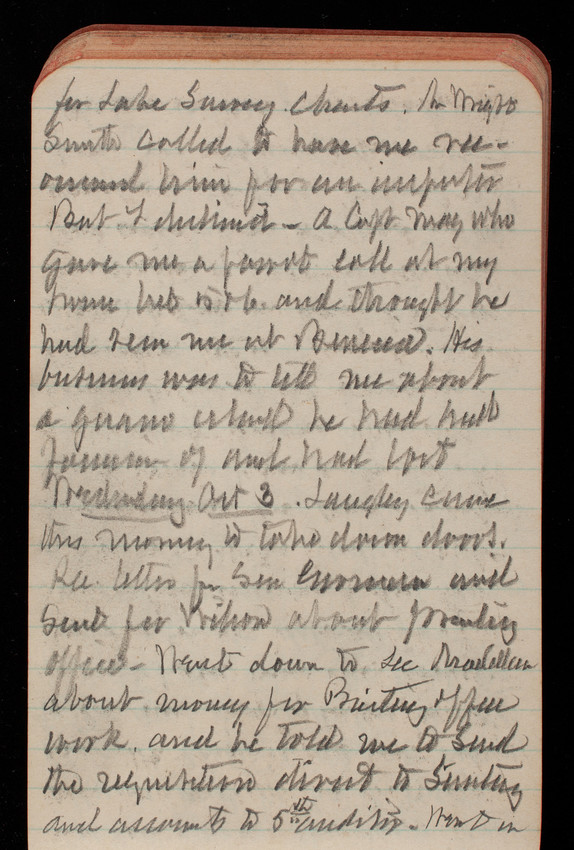 for Lake Survey charts. Mr Wright
Smith called to have me rec-
ommend him for an inspector
But I declined - A Capt May who
gave me a parrot call at my
home bet 5 & 6 and thought he
had seen me at Benecia. His
business was to tell me about
a guano island he had had
possession of and had lost
Wednesday Oct 3. Langley came
this morning to take down doors.
Rec letter for Gen and
Sent for Wilson about Printing
office - Went down to see
about money for Printing office
work. and he told me to send
the requisition direct to
and accounts to 5th auditor. Went in